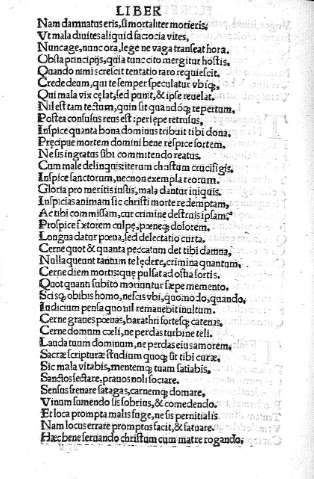 LIBER
Nam damnatus eris, si mortaliter motieris.
Vt mala diuites aliquid satrocia vites,
Nunc age, nunc ora, lege ne vaga transeat hora.
Obsta principijs, quia tunc cito mergitur hostis,
Quando nimis crescit tentatio raro requiescit.
Crede deum, qui te semper speculatur vbiq;,
Qui mala vix cęlat, sed punit, & ipse reuelat.
Nil est tam tectum, quin sit quandoq; repertum.
Postea confusus reus est: periępe retrusus,
Inspice quanta bona dominus tribuit tibi dona.
Pręcipue mortem domini bene respice fortem.
Ne sis ingratus sibi committendo reatus.
Cum male delinquis iterum christum crucifigis.
Inspice sanctorum, necnon exempla reorum.
Gloria pro meritis iustis, mala dantur iniquis.
Inspicias animam sic christi morte redemptam,
Ac tibi commissam, cur crimine destruis ipsam,
Prospice fœtorem culpę, pœnęq; dolorem.
Longua datur pœna, sed delectatio curta.
Cerne quot & quanta peccatum det tibi damna,
Nulla queunt tantum te lędere, crimina quantum,
Cerne diem mortisque pulsat ad ostia fortis.
Quot quanti subito moriuntur sæpe memento.
Scisq; obibis homo, nescis vbi, quomodo, quando,
Iudicium pensa quo nil remanebit inultum.
Cerne graues pœnas, barathri fortesq; catenas,
Cerne domum cæli, ne perdas turbine teli.
Lauda tuum dominum, ne perdas eius amorem.
Sacræ scripturæ studium quoq; sit tibi curæ,
Sic mala vitabis, mentemq; tuam satiabis.
Sanctos sectare, prauos noli sociare.
Sensus frenare satagas, carnemq; domare,
Vinum sumendo sis sobrius, & comedendo.
Et loca prompta malis fuge, ne sis pernitialis
Nam locus errare promptus facit, & satuare.
Hæc bene seruando christum cum matre rogando,